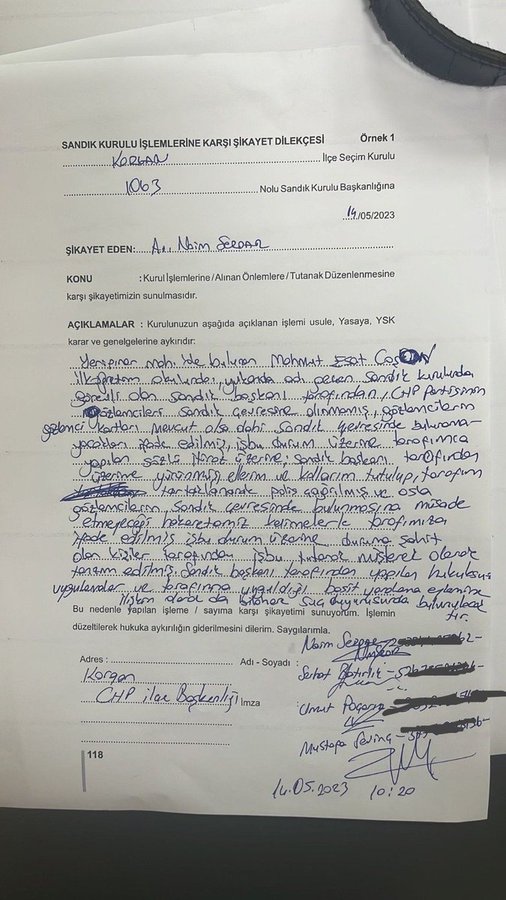 SANDIK KURULU İŞLEMLERİNE KARŞI ŞİKAYET DİLEKÇESİ Örnek 1
KORGAN İlçe Seçim Kurulu
1063 Nolu Sandık Kurulu Başkanlığına
14/05/2023
ŞİKAYET EDEN: Av. Naim Serdar
KONU : Kurul İşlemlerine / Alınan Önlemlere / Tutanak Düzenlenmesine
karşı şikayetimizin sunulmasıdır.
AÇIKLAMALAR : Kurulunuzun aşağıda açıklanan işlemi usule, Yasaya, YSK
karar ve genelgelerine aykırıdır:
Yeşilpınar mah'de bulunan Mahmut Esat
ilköğretim okulunda, yukarıda adı geçen sandık kurulunda
görevli olan sandık başkanı tarafından, CHP Partisinin
gözlemcileri sandık çevresine alınmamış, gözlemcilerin
gözlemci kartları mevcut olsa dahi sandık çevresinde buluna-
yacakları ifade edilmiş, işbu durum üzerine tarafımca
yapılan sözlü itiraz üzerine; sandık başkanı tarafından
üzerime yürünmüş ellerim ve kollarım tutulup, tarafım
tartaklanarak polis çağrılmış ve asla
gözlemcilerin sandık çevresinde bulunmasına müsade
etmeyeceği hakaretamiz kelimelerle tarafımıza
ifade edilmiş işbu durum üzerine duruma şahit
olan kişiler tarafından işbu tutanak müşterek olarak
tanzim edilmiş. Sandık başkanı tarafından yapılan hukuksuz
uygulamalar ve tarafıma uyguladığı basit yaralama eylemine
ilişkin olarak da bilahare suç duyurusunda bulunulacak
tır.
Bu nedenle yapılan işleme / sayıma karşı şikayetimi sunuyorum. İşlemin
düzeltilerek hukuka aykırılığın giderilmesini dilerim. Saygılarımla.
Adres : Adı - Soyadı : Naim Serdar
Korgan Serhat
CHP ilçe Başkanlığı İmza : Umut
Mustafa Sevinç
118
14.05.2023 10:20